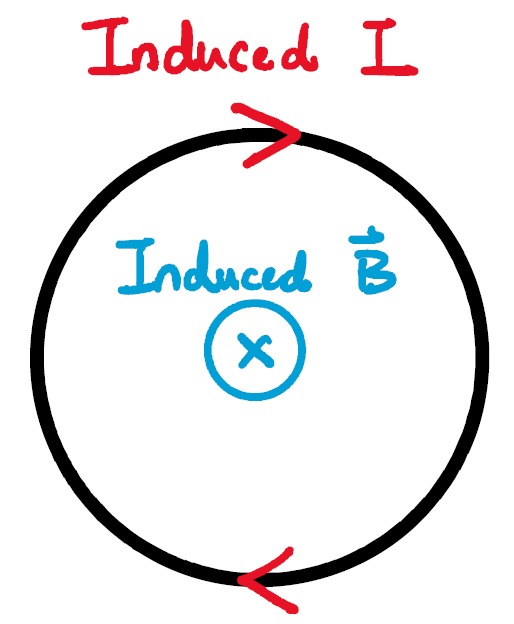 Induced I
Induced B⃗
x